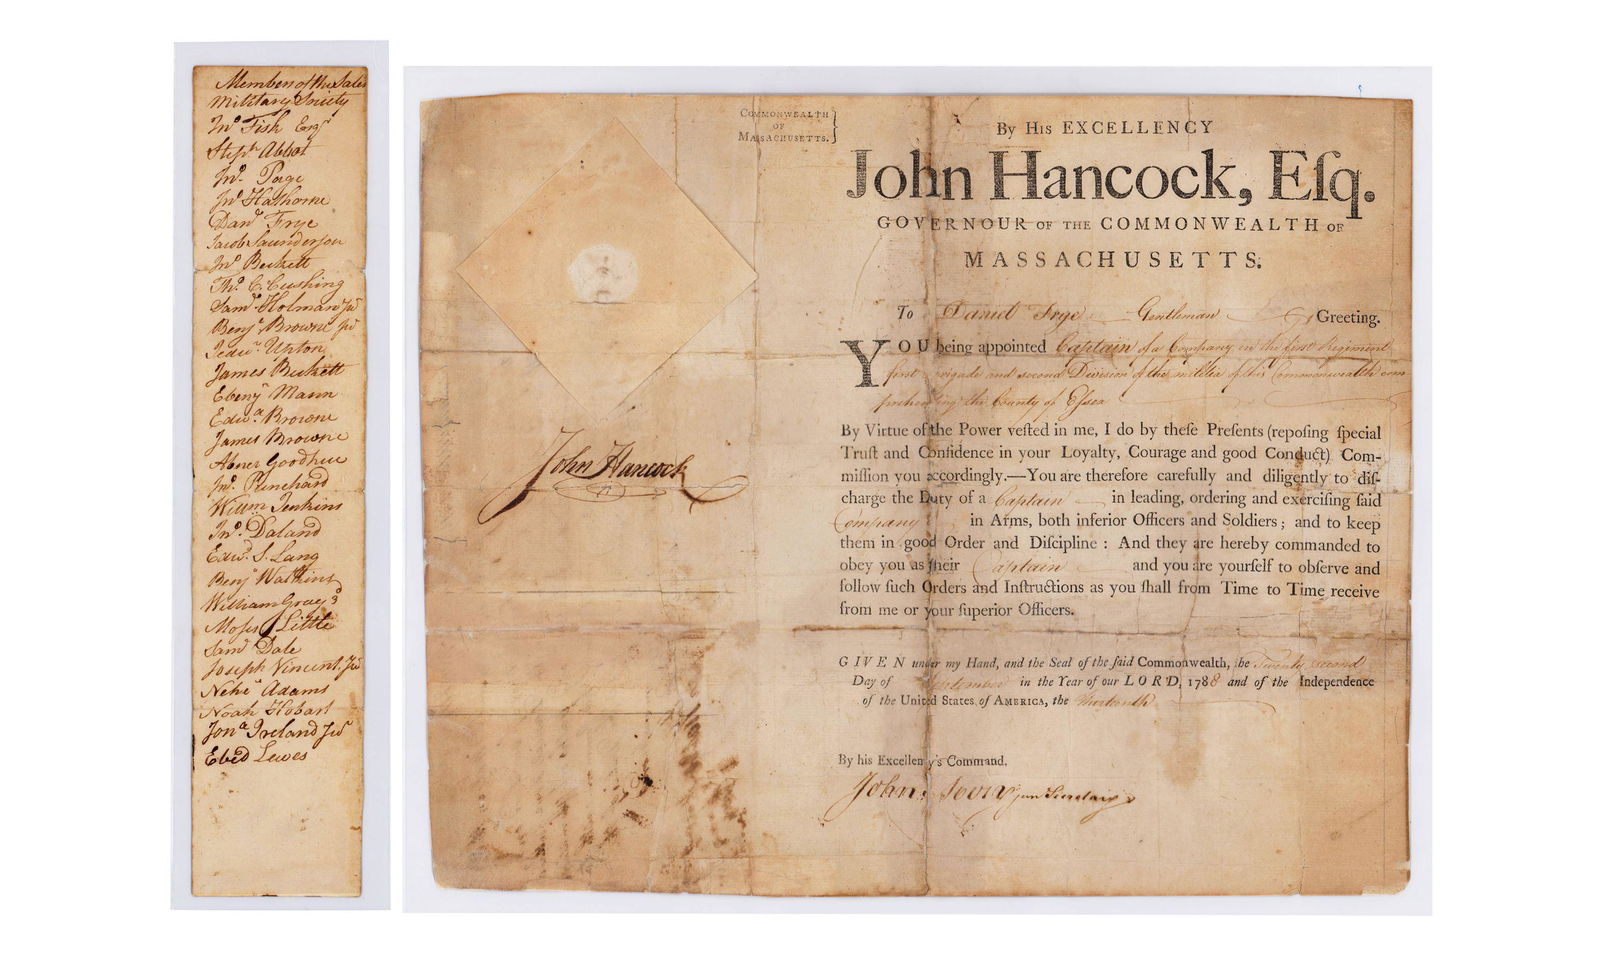 Members of the Salem
Military Society
Jnº Fish Esqʳ
Stepⁿ Abbot
Jnº Page
Jnº Hathorne
Danˡ Frye
Jacob Saunderson
Jnº Beckett
Thº C. Cushing
Samˡ Holman Jʳ
Benjª Browne Jʳ
Upton
James Beckett
Ebenʳ Mann
Edwᵈ Browne
James Browne
Abner Goodhue
Jnº Punchard
Willm Jenkins
Jnº Daland
Edwᵈ S. Lang
Benjª Watkins
William Gray 3ᵈ
Moses Little
Samˡ Dale
Joseph Vincent Jʳ
Nehʰ Adams
Noah Hobart
Jonª Ireland Jʳ
Ebed Lewes
COMMONWEALTH
OF
MASSACHUSETTS.
John Hancock
By His EXCELLENCY
John Hancock, Eſq.
GOVERNOUR OF THE COMMONWEALTH OF
MASSACHUSETTS.
To Daniel Frye Gentleman Greeting.
YOU being appointed Captain of a Company in the first Regiment
first brigade and second Division of the militia of this Commonwealth com
prehending the County of Eſsex
By Virtue of the Power veſted in me, I do by theſe Preſents (repoſing ſpecial
Truſt and Confidence in your Loyalty, Courage and good Conduct) Com-
miſſion you accordingly.—You are therefore carefully and diligently to diſ-
charge the Duty of a Captain in leading, ordering and exerciſing ſaid
Company in Arms, both inferior Officers and Soldiers ; and to keep
them in good Order and Diſcipline : And they are hereby commanded to
obey you as their Captain and you are yourſelf to obſerve and
follow ſuch Orders and Inſtructions as you ſhall from Time to Time receive
from me or your ſuperior Officers.
GIVEN under my Hand, and the Seal of the ſaid Commonwealth, the Twenty second
Day of September in the Year of our LORD, 1788 and of the Independence
of the United States of AMERICA, the thirteenth
By his Excellency's Command,
John Avery jun Secretary